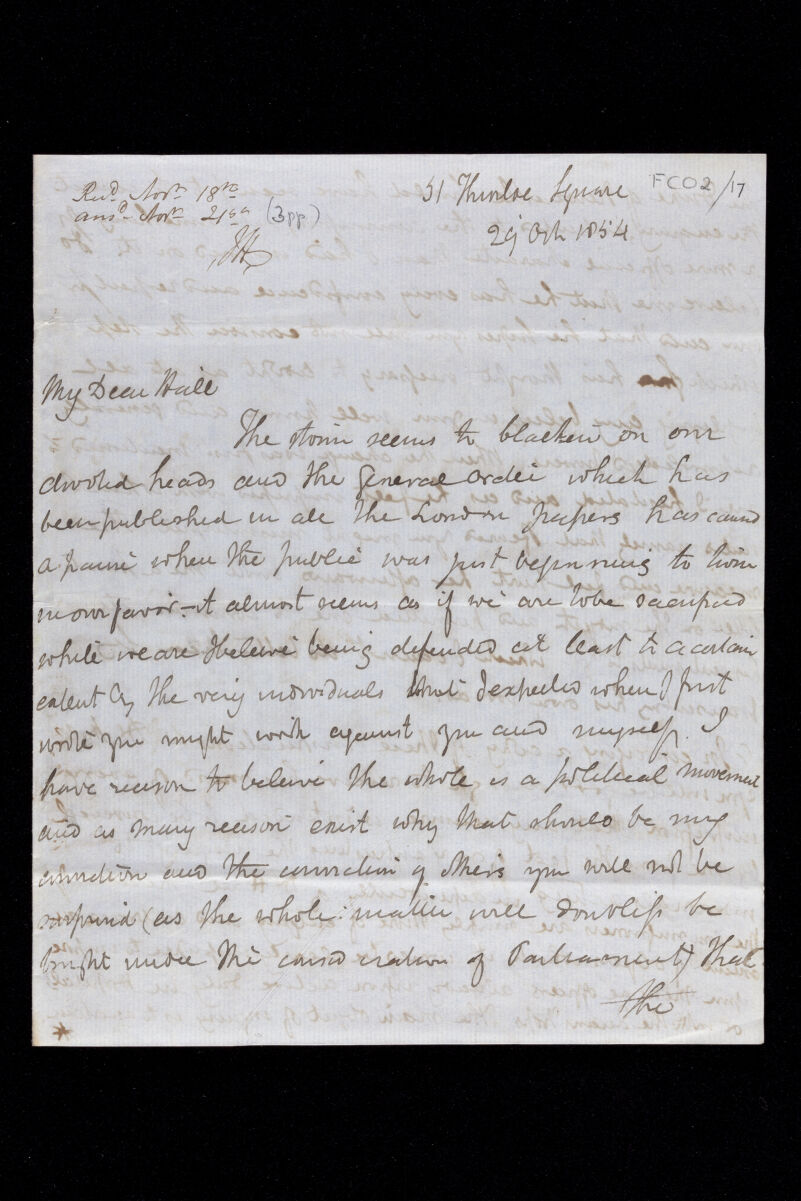 Recd. Novr. 18th
ansd. Novr. 21st (3pp)
JH
51 Thurloe Square
FCO2/17
29 Octr 1854
My Dear Hall
The storm seems to blacken on our
devoted heads and the General Order which has
been published in all the London papers has caused
a panic when the public was just beginning to turn
in our favor - it almost seems as if we are to be sacrificed
while we are I beleive being defended at least to a certain
extent by the very individuals that I expected when I first
wrote you might work against you and myself. I
have reason to beleive the whole is a political movement
and as many reasons exist why that should be my
conviction and the conviction of others you will not be
surprised (as the whole matter will doubtless be
brought under the consideration of Parliament) that
the